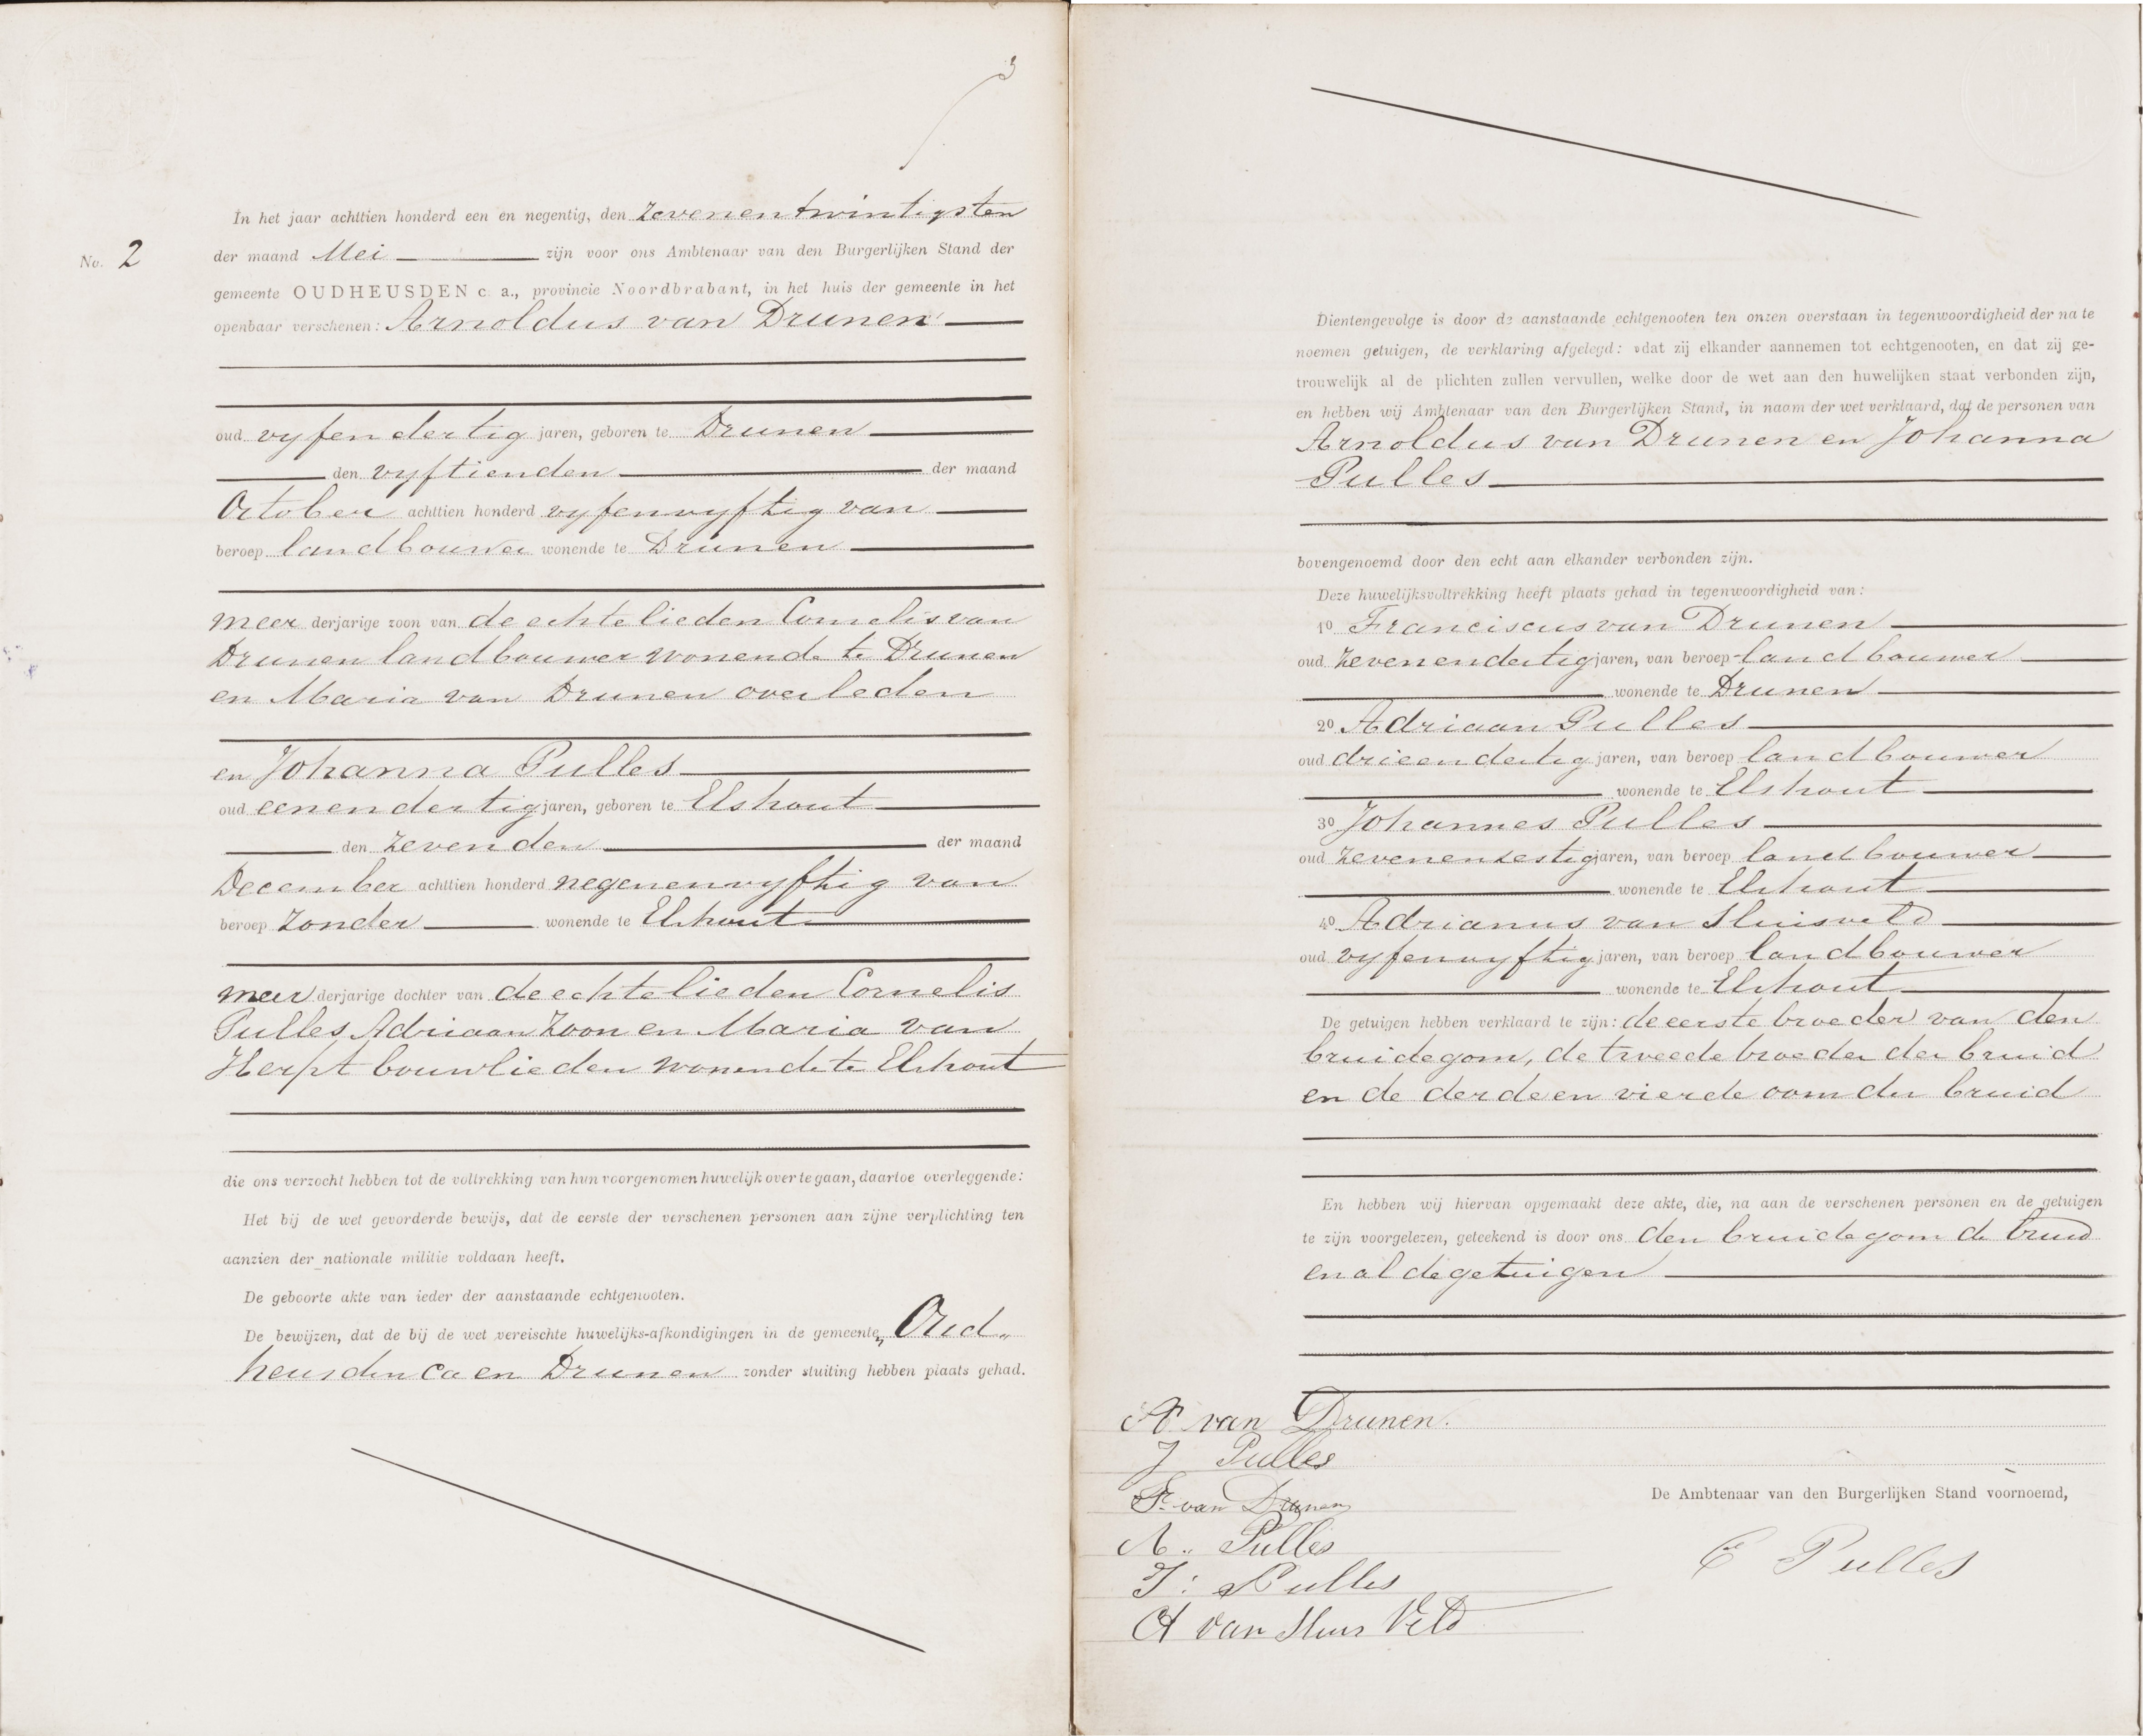 3
In het jaar achttien honderd een en negentig, den zevenentwintigsten
No. 2
der maand Mei zijn voor ons Ambtenaar van den Burgerlijken Stand der
gemeente OUDHEUSDEN c. a., provincie Noordbrabant, in het huis der gemeente in het
openbaar verschenen: Arnoldus van Drunen
oud vyfendertig jaren, geboren te Drunen
den vyftienden der maand
October achttien honderd vyfenvyftig van
beroep landbouwer wonende te Drunen
meer derjarige zoon van de echtelieden Cornelis van
Drunen landbouwer wonende te Drunen
en Maria van Drunen overleden
en Johanna Pulles
oud eenendertig jaren, geboren te Elshout
den zevenden der maand
December achttien honderd negenenvyftig van
beroep zonder wonende te Elshout
meer derjarige dochter van de echtelieden Cornelis
Pulles Adriaan Zoon en Maria van
Herpt bouwlieden wonende te Elshout
die ons verzocht hebben tot de voltrekking van hun voorgenomen huwelijk over te gaan, daartoe overleggende:
Het bij de wet gevorderde bewijs, dat de eerste der verschenen personen aan zijne verplichting ten
aanzien der nationale militie voldaan heeft.
De geboorte akte van ieder der aanstaande echtgenooten.
De bewijzen, dat de bij de wet vereischte huwelijks-afkondigingen in de gemeente„ Oud„
heusden ca en Drunen zonder stuiting hebben plaats gehad.
Dientengevolge is door de aanstaande echtgenooten ten onzen overstaan in tegenwoordigheid der na te
noemen getuigen, de verklaring afgelegd: »dat zij elkander aannemen tot echtgenooten, en dat zij ge-
trouwelijk al de plichten zullen vervullen, welke door de wet aan den huwelijken staat verbonden zijn,
en hebben wij Ambtenaar van den Burgerlijken Stand, in naam der wet verklaard, dat de personen van
Arnoldus van Drunen en Johanna
Pulles
bovengenoemd door den echt aan elkander verbonden zijn.
Deze huwelijksvoltrekking heeft plaats gehad in tegenwoordigheid van:
1o Franciscus van Drunen
oud zevenendertig jaren, van beroep landbouwer
wonende te Drunen
2o Adriaan Pulles
oud drieendertig jaren, van beroep landbouwer
wonende te Elshout
3o Johannes Pulles
oud zevenenzestig jaren, van beroep landbouwer
wonende te Elshout
4o Adrianus van Sluisveld
oud vyfenvyftig jaren, van beroep landbouwer
wonende te Elshout
De getuigen hebben verklaard te zijn: de eerste broeder van den
bruidegom, de tweede broeder der bruid
en de derde en vierde oom der bruid
En hebben wij hiervan opgemaakt deze akte, die, na aan de verschenen personen en de getuigen
te zijn voorgelezen, geteekend is door ons den bruidegom de bruid
en al de getuigen
A van Drunen.
J Pulles
Fr van Drunen
De Ambtenaar van den Burgerlijken Stand voornoemd,
A.. Pulles
C Pulles
J: Pulles
A van Sluis Veld